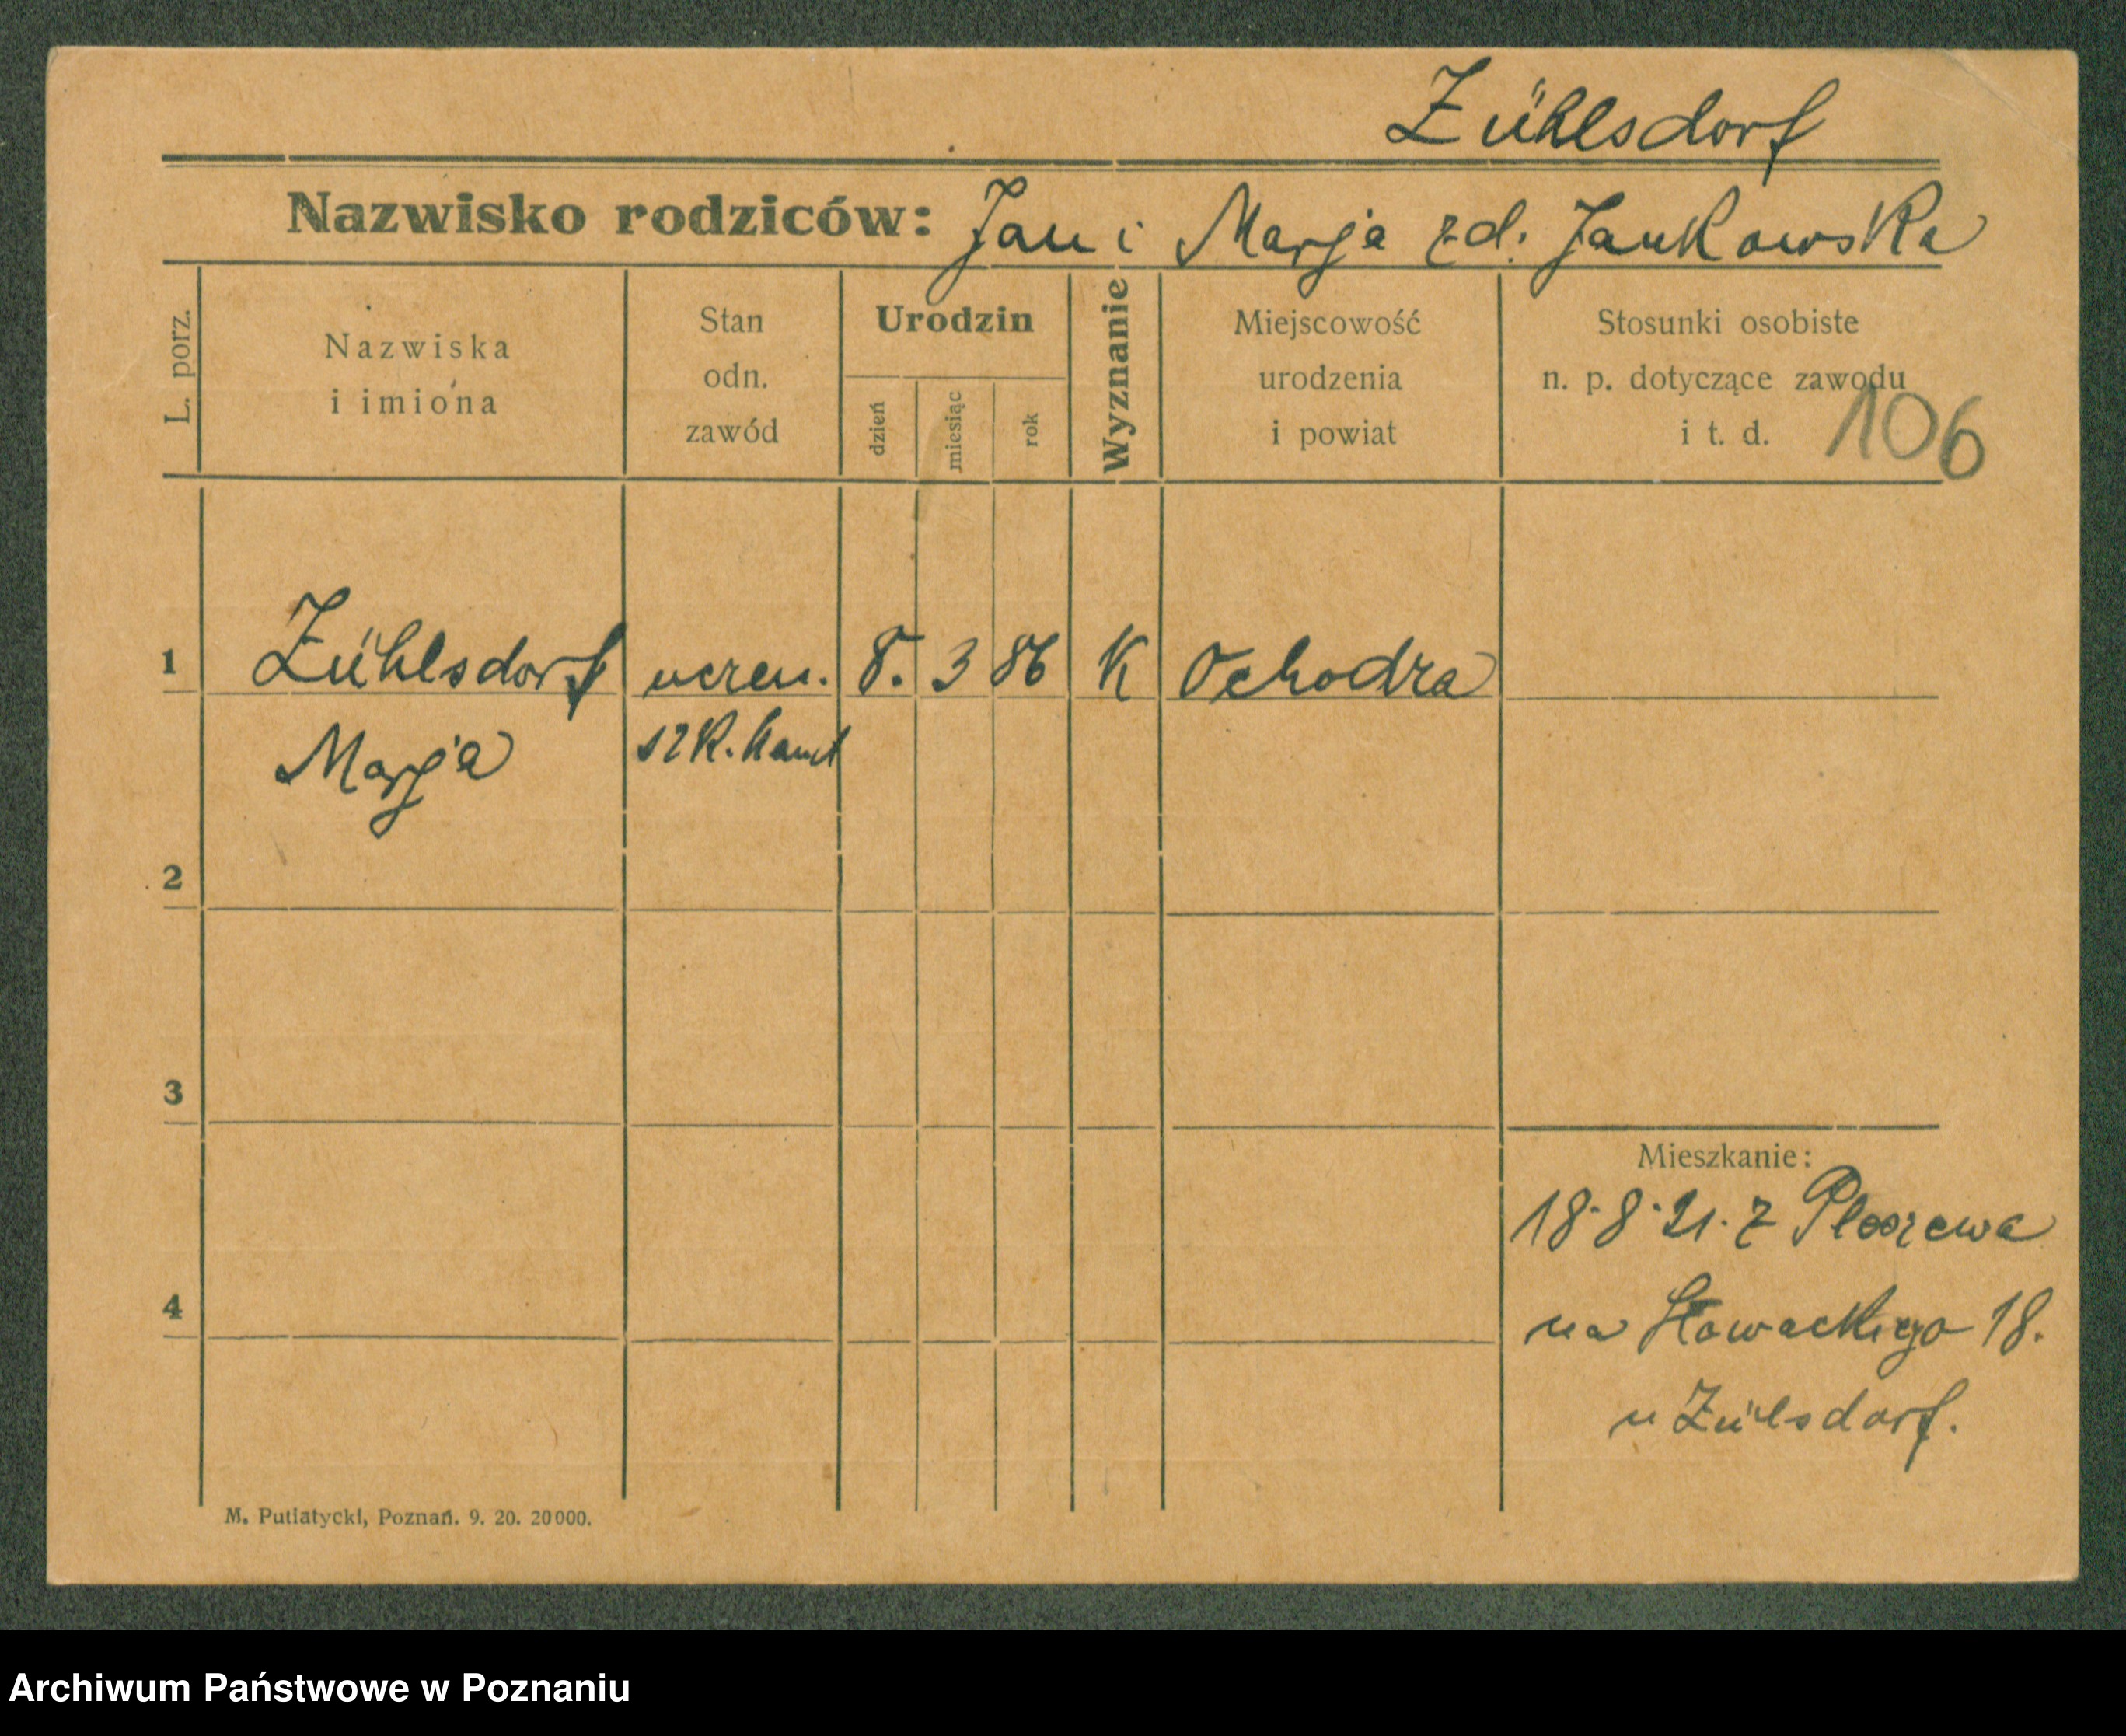 Zühlsdorf
Nazwisko rodziców: Jan i Marja zd. Jankowska
L. porz.
Nazwiska
i imiona
Stan
odn.
zawód
Urodzin
dzień
miesiąc
rok
Wyznanie
Miejscowość
urodzenia
i powiat
Stosunki osobiste
n. p. dotyczące zawodu
i t. d.
106
1 Zühlsdorf uczen. 8. 3 86 K Ochodza
Marja szk. handl
2
3
4
Mieszkanie:
18.8.21. z Pleszewa
na Słowackiego 18.
u Zühlsdorf.
M. Putiatycki, Poznań. 9. 20. 20000.
Archiwum Państwowe w Poznaniu